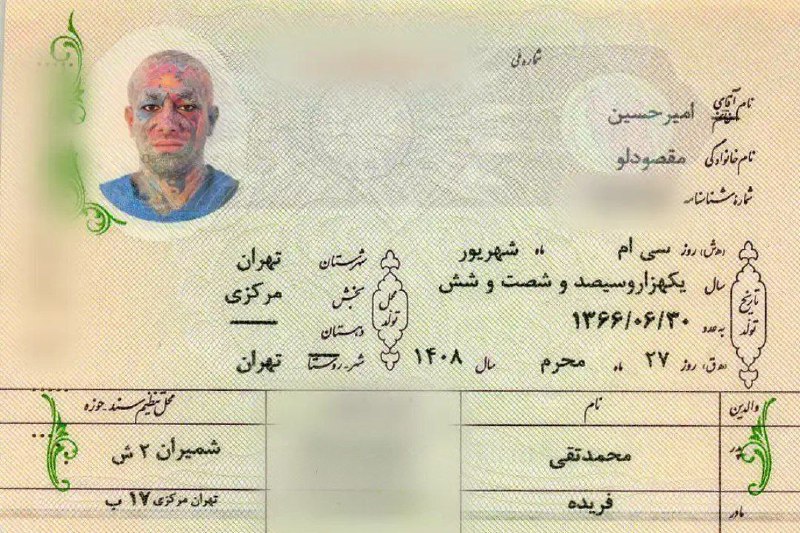 شماره ملی
نام آقای امیرحسین
نام خانوادگی مقصودلو
شماره شناسنامه
تاریخ تولد
(ه‍.ش) روز سی ام ماه شهریور
سال یکهزاروسیصد و شصت و شش
به عدد ۱۳۶۶/۰۶/۳۰
(ه‍.ق) روز ۲۷ ماه محرم سال ۱۴۰۸
محل تولد
شهرستان تهران
بخش مرکزی
دهستان
شهر-روستا تهران
والدین نام محل تنظیم سند-حوزه
پدر محمدتقی شمیران ۲ ش
مادر فریده تهران مرکزی ۱۷ ب